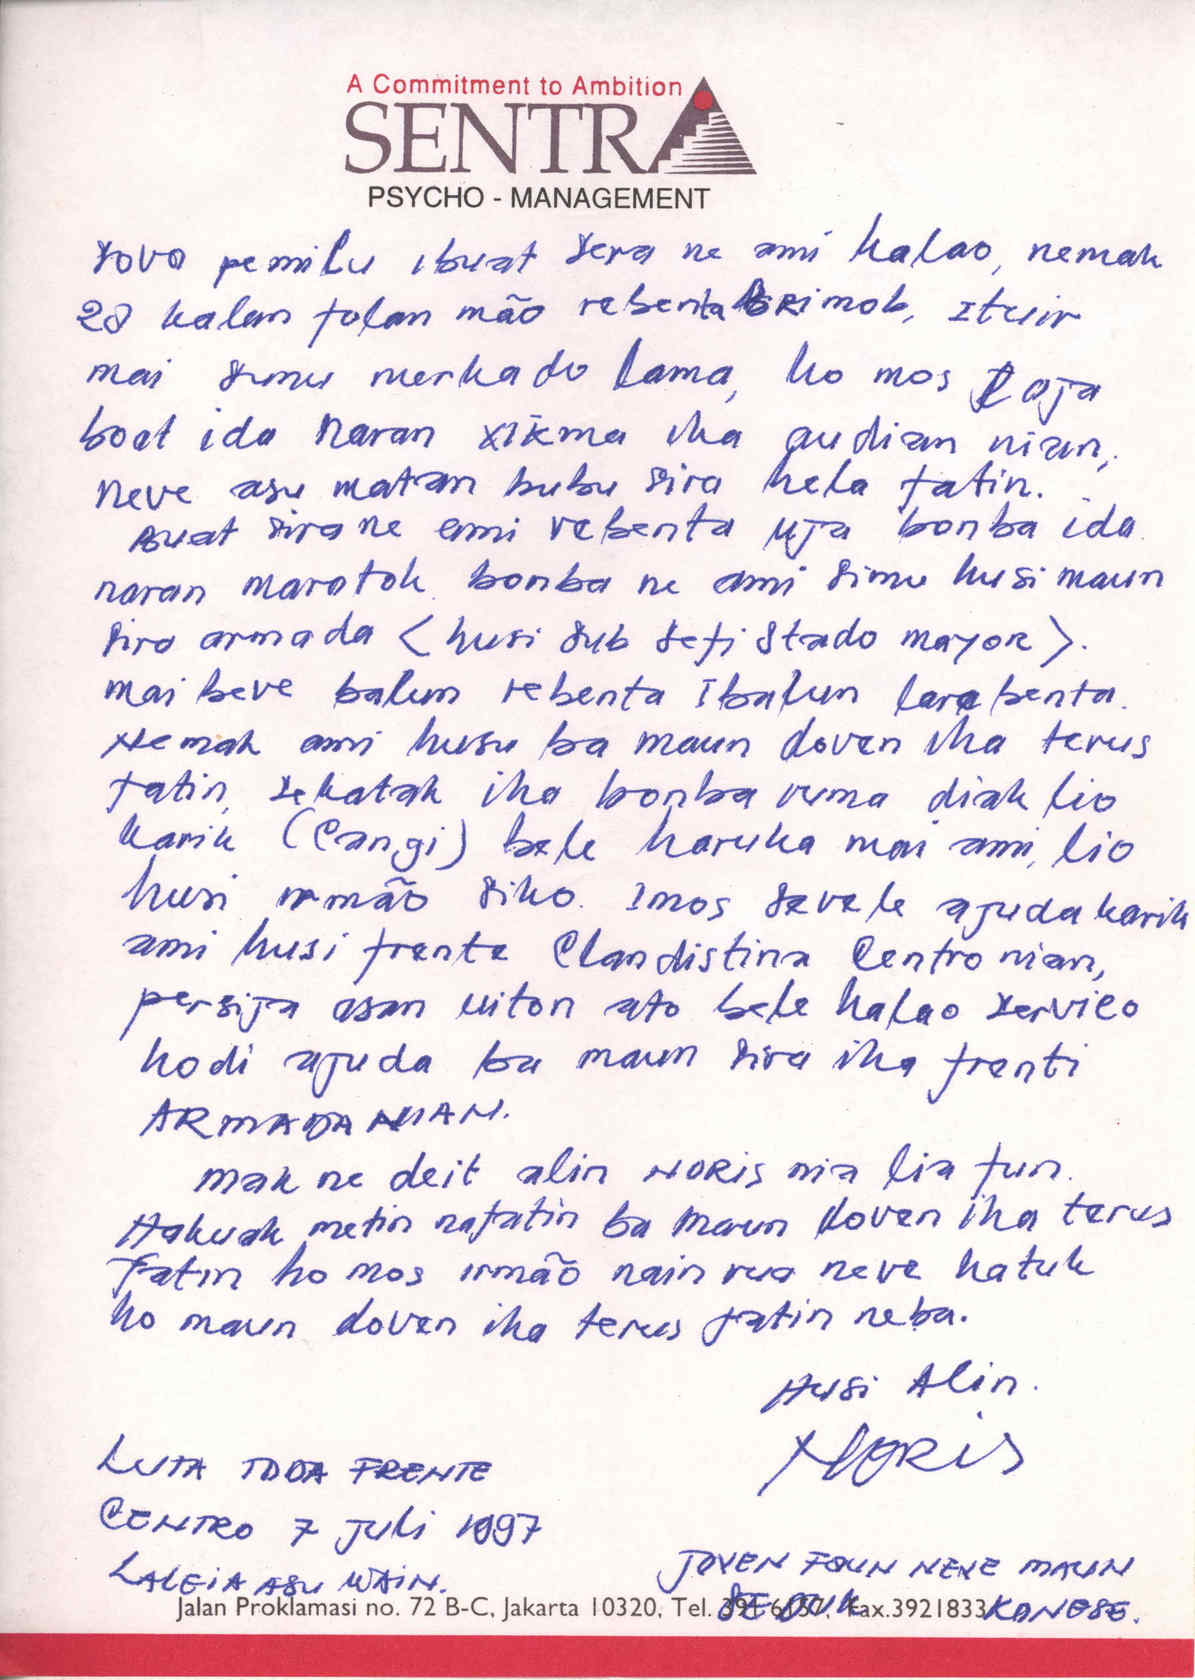 A Commitment to Ambition
SENTRA
PSYCHO - MANAGEMENT
sovo pemilu ibuat sera ne ami halao, nemak
28 kalan fulan mão rebenta BRimob, Ituir
mai sunu merkado lama, ho mos Loja
boat ida Naran xikma iha audian nian,
Neve asu matan bubu sira hela fatin.
Buat sira ne ami rebenta uja bonba ida
naran marotok. bonba ne ami simu husi maun
sira armada < husi sub sefi Stado mayor >.
mai beve balun rebenta Ibalun la rebenta.
Nemak ami husu ba maun doven iha terus
fatin, sekatak iha bonba ruma diak lio
karik (Cangi) bele haruka mai ami, lio
husi irmão siko. Imos sevele ajuda karik
ami husi frente Clandistina Centro nian,
persija osan uiton ato bele halao servico
hodi ajuda ba maun sira iha frenti
ARMADA NIAN.
mak ne deit alin NORIS nia lia fun.
Hakuak metin nafatin ba Maun doven iha terus
Fatin ho mos irmão nain rua neve hatuk
ho maun doven iha terus fatin neba.
Husi Alin.
NORIS
LUTA TODA FRENTE
CENTRO 7 Juli 1997
LALEIA ASU WAIN.
JOVEN FOUN NEVE MAUN
SEDUK KONESE.
Jalan Proklamasi no. 72 B-C, Jakarta 10320, Tel. Fax.3921833